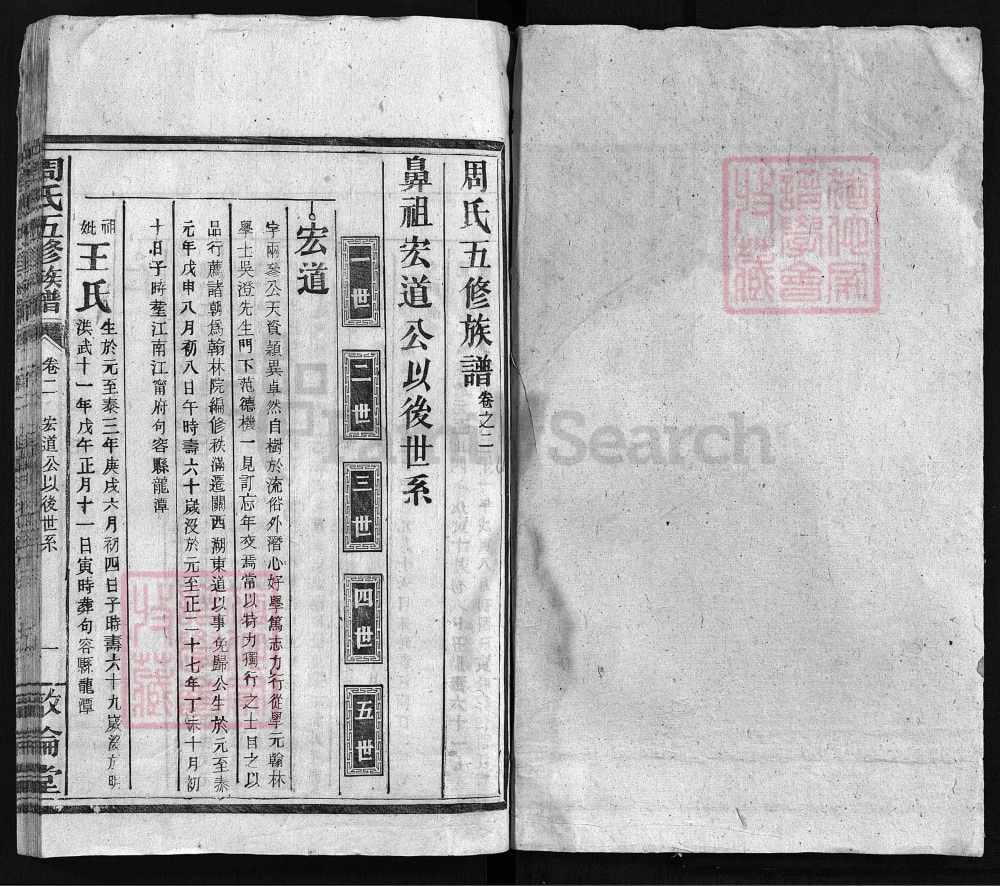 周氏五修族譜卷之二
鼻祖宏道公以後世系
一世
二世
三世
四世
五世
宏道
字兩參公天資頴異卓然自樹於流俗外潛心好學篤志力行從學元翰林
學士吳澄先生門下范德機一見訂忘年交焉常以特力獨行之士目之以
品行薦諸朝為翰林院編修秩滿遷關西湖東道以事免歸公生於元至泰
元年戊申八月初八日午時壽六十歲沒於元至正二十七年丁未十月初
十日子時塟江南江甯府句容縣龍潭
祖妣王氏
生於元至泰三年庚戌六月初四日子時壽六十九歲沒於明
洪武十一年戊午正月十一日寅時葬句容縣龍潭
周氏五修族譜
卷二 宏道公以後世系
一
敘倫堂
FamilySearch
譜學會
收藏